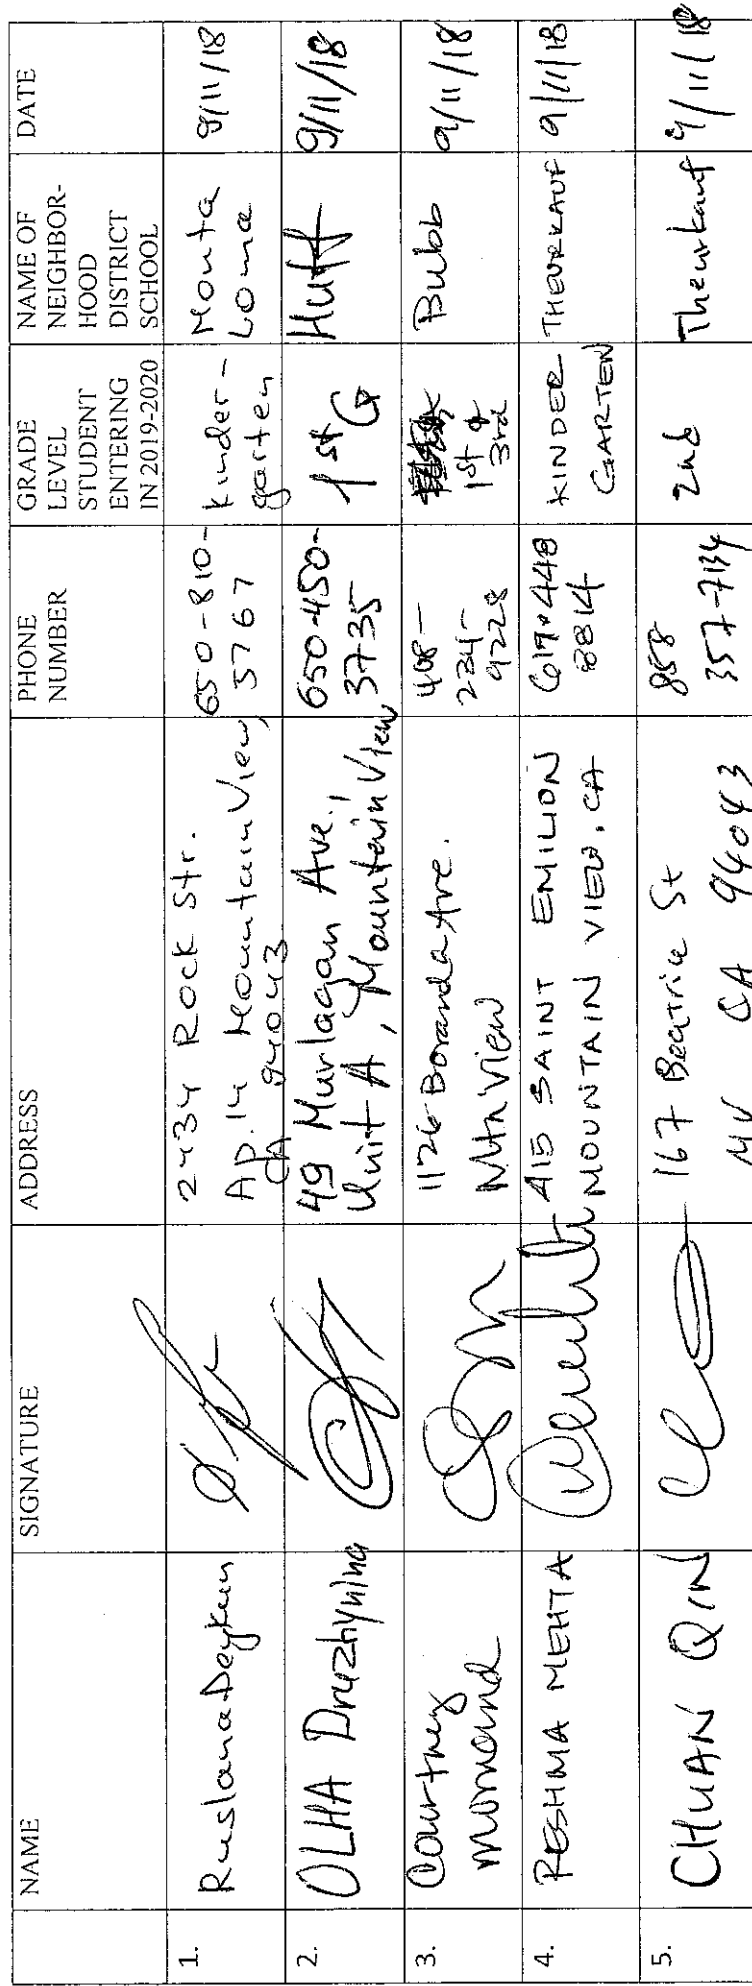 NAME
SIGNATURE
ADDRESS
PHONE
NUMBER
GRADE
LEVEL
STUDENT
ENTERING
IN 2019-2020
NAME OF
NEIGHBOR-
HOOD
DISTRICT
SCHOOL
DATE
1.
Ruslana Deykun
2434 Rock Str.
Ap. 14 Mountain View,
CA 94043
650-810-
5767
kinder-
garten
Monta
Loma
9/11/18
2.
OLHA Druzhynina
49 Murlagan Ave.,
Unit A, Mountain View
650-450-
3735
1st G
Huff
9/11/18
3.
Courtney
Momand
1126 Boranda Ave.
Mtn View
408-
234-
9228
1st &
3rd
Bubb
9/11/18
4.
RESHMA MEHTA
415 SAINT EMILION
MOUNTAIN VIEW, CA
619.448
8814
KINDER
GARTEN
THEURKAUF
9/11/18
5.
CHUAN QIN
167 Beatrice St
MV CA 94043
858
357-7134
2nd
Theurkauf
9/11/18